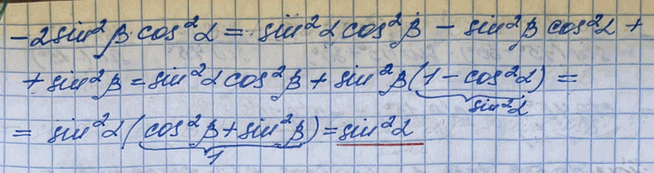 -2sin²β cos²α = sin²α cos²β - sin²β cos²α +
+ sin²β = sin²α cos²β + sin²β(1 - cos²α) =
sin²α
= sin²α(cos²β + sin²β) = sin²α
1